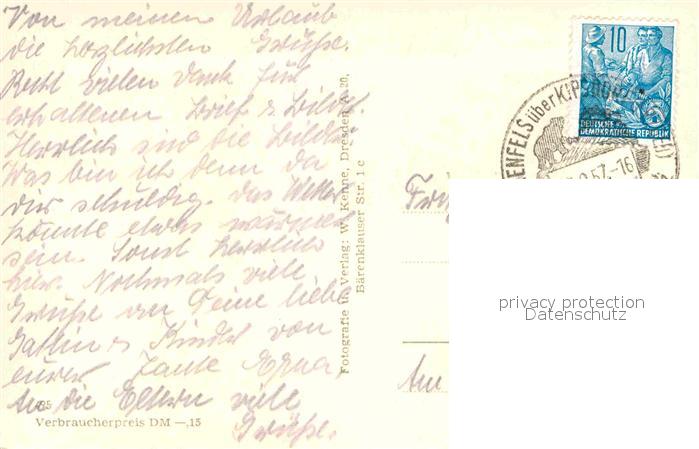 Von meinen Urlaub
die herzlichsten Grüße.
Recht vielen Dank für
erhaltenen Brief & Bilder.
Herrlich sind die Bilder
Was bin ich denn da
dir schuldig. Das Wetter
könnte etwas wärmer
sein. Sonst herrlich
hier. Nochmals viele
Grüße an Deine liebe
Gattin & Kinder von
eurer Tante Erna,
An die Eltern viele
Grüße.
Verbraucherpreis DM —,15
Fotografie u. Verlag: W. Kenne, Dresden A 20,
Bärenklauser Str. 1 c
10
DEUTSCHE
DEMOKRATISCHE REPUBLIK
ENFELS über KIPSDORF
57.-16
An
privacy protection
Datenschutz